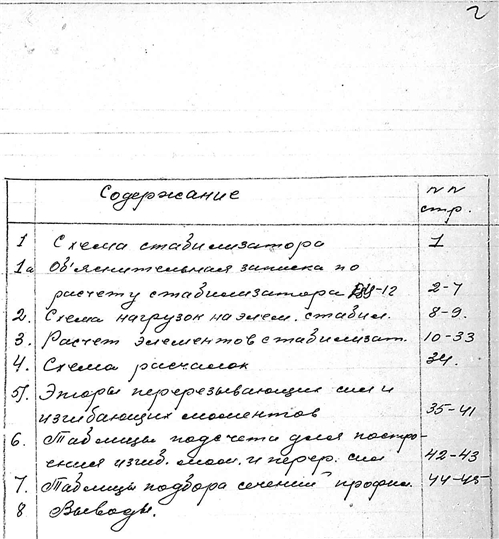 2
Содержание NN стр.
1 Схема стабилизатора 1
1а Объяснительная записка по
расчету стабилизатора 2-7
2. Схема нагрузок на элем. стабил. 8-9.
3. Расчет элементов стабилизат. 10-33
4. Схема расчалок 34.
5. Эпюры перерезывающих сил и
изгибающих моментов 35-41
6. Таблицы подсчета для постро-
ения изгиб. мом. и перер. сил 42-43
7. Таблицы подбора сечений профил. 44-45
8 Выводы.